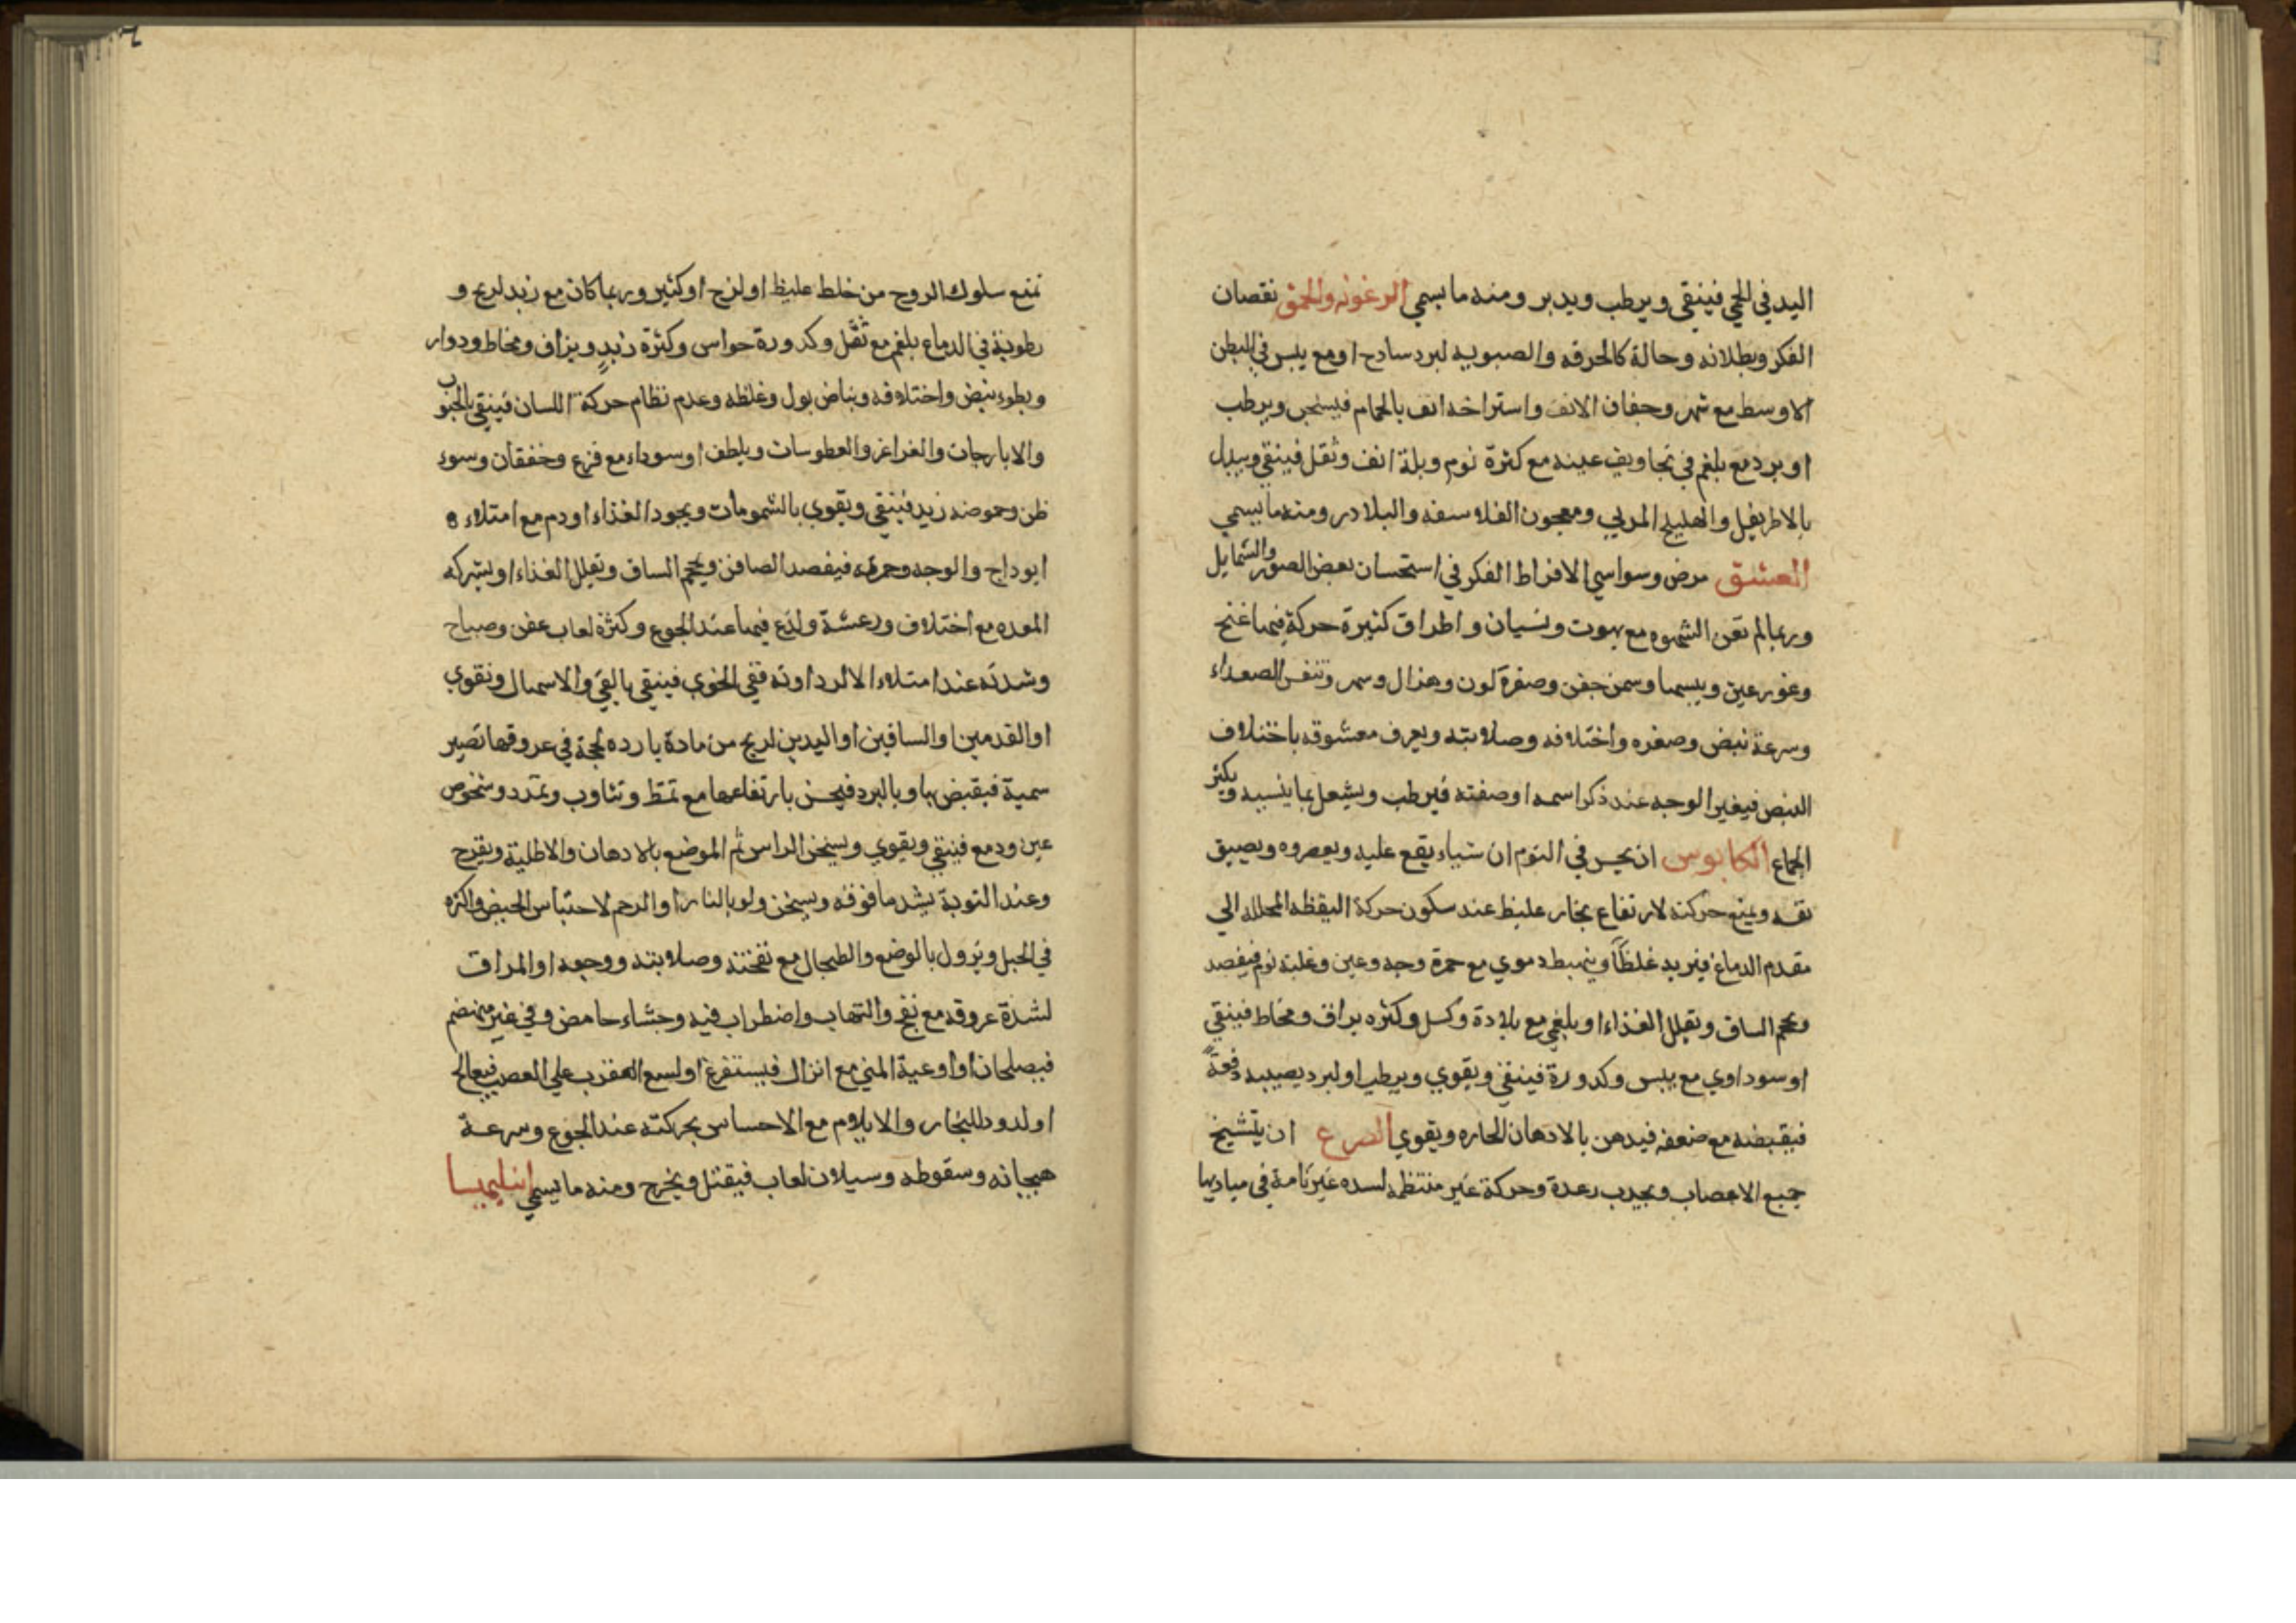 اليد في الحمي فينقي ويرطب ويدبر ومنه ما يسمي الرعونه والحمق نقصان
الفكر وبطلانه وحالة كالخرفه والصبوبيه لبرد سادح او مع يبس في البطن
الاوسط مع سهر وجفاف الانف واستراخه انف بالحمام فيسخن ويرطب
او برد مع بلغم في تجاويف عينه مع كثرة نوم وبلة انف وثقل فينقي ويبدل
بالاطريفل والهليلج المربي ومعجون الفلاسفه والبلادر ومنه ما يسمي
العشق مرض وسواسي الافراط الفكر في استحسان بعض الصور والشمايل
وربما لم تقن الشهوه مع بهوت ونسيان واطراق كثيرة حركة فيها غنج
وغور عين ويبسها وسمن جفن وصفرة لون وهزال وسهر وتنفس الصعداء
وسرعة نبض وصغره واختلافه وصلابته ويعرف معشوقه باختلاف
النبض فيغير الوجه عند ذكر اسمه او صفته فيرطب ويشغل بما ينسيه ويكثر
الجماع الكابوس ان يحس في النوم ان شياء يقع عليه ويعصره ويضيق
نفسه ويمنع حركته لارتفاع بخار غليظ عند سكون حركة اليقظه المحلله الي
مقدم الدماغ فيزيد غلظاً دموي مع حمرة وجه وعين وغلبة نوم فيفصد
ويحجم الساق ويقلل الغذاء او بلغمي مع بلادة وكسل وكثره بزاق ومخاط فينقي
او سوداوي مع يبس وكدورة فينقي ويقوي ويرطب او لبرد يصيبه دفعةً
فيقبضه مع ضعفه فيدهن بالادهان الحاره ويقوي الصرع ان يتشنج
جميع الاعصاب ويجدب رعدة وحركة غير منتظمه لسده غير تامة في مباديها
تمنع سلوك الروح من خلط غليظ او لزج او كثير وربما كان مع زبد لريح و
رطوبة في الدماغ بلغم مع ثقل وكدورة حواس وكثرة زبد وبزاق ومخاط ودوار
وبطوء نبض واختلافه وبياض بول وغلظه وعدم نظام حركة اللسان فينقي بالحبوب
والايارجات والغراغر والعطوسات ويلطف او سوداء مع فزع وخفقان وسوء
ظن وحموضه زبد فينقي ويقوي بالشمومات ويجود الغذاء او دم مع امتلاء
اوداج والوجه وحمرته فيفصد الصافن ويحجم الساق ويقلل الغذاء او بشركه
المعده مع اختلاف ورعشة ولذع فيها عند الجوع وكثرة لعاب عفن وصياح
وشدته عند امتلاء فينقي بالقي والاسهال وتقوي
او القدمين او الساقين او اليدين لريح من مادة بارده لحجة في عروقها تصير
سمية فيقبض بها وبالبرد فيحس بارتفاعها مع تمط وتثاوب وتمدد وشخوص
عين ودمع فينقي ويقوي ويسخن الراس ثم الموضع بالادهان والاطلية ويقرح
وعند النوبة يشد ما فوقه ويسخن ولو بالنار او الرحم لاحتباس الحيض واكثره
في الحبل ويزول بالوضع والطحال مع نفخته وصلابته ووجعه او المراق
لشدة عروقه مع نفخ والتهاب واضطراب فيه وجشاء حامض وقي غير منهضم
فيصلحان او اوعية المني مع انزال فيستفرغ او لسع العقرب علي العصب فيعالج
او لدود للبخار والايلام مع الاحساس بحركته عند الجوع وسرعة
هيجانه وسقوطه وسيلان لعاب فيقتل ويخرج ومنه ما يسمي